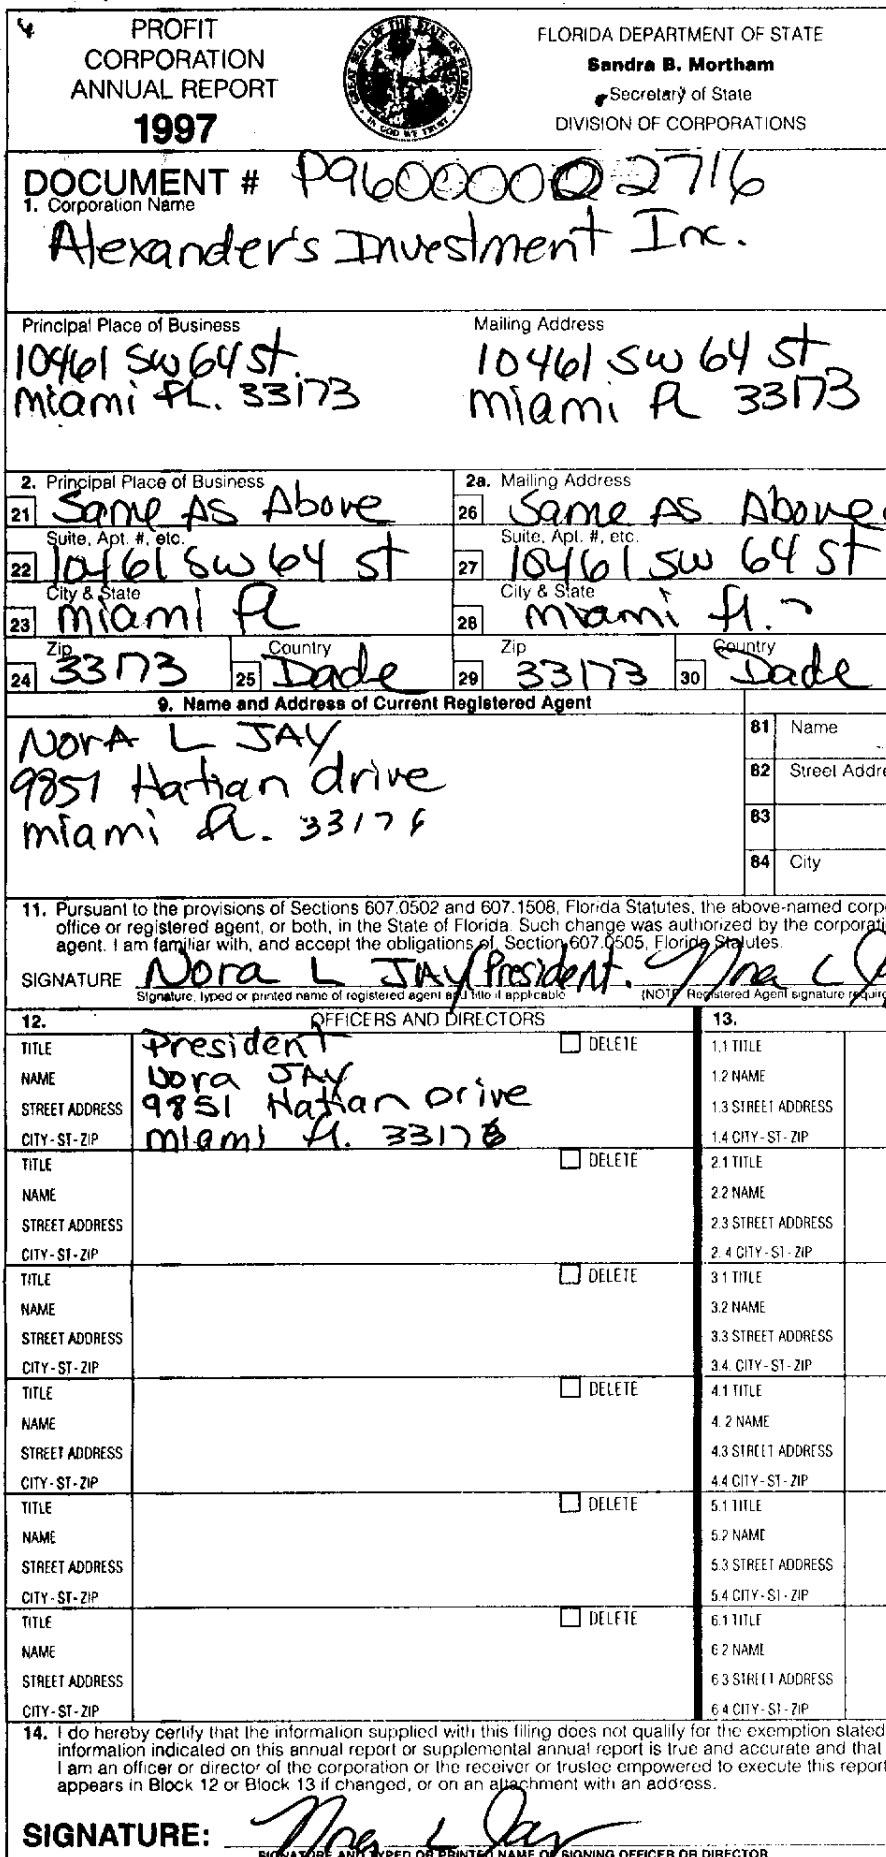 PROFIT
CORPORATION
ANNUAL REPORT
1997
GREAT SEAL OF THE STATE OF FLORIDA
IN GOD WE TRUST
FLORIDA DEPARTMENT OF STATE
Sandra B. Mortham
Secretary of State
DIVISION OF CORPORATIONS
DOCUMENT # P96000002716
1. Corporation Name
Alexander's Investment Inc.
Principal Place of Business
10461 SW 64 St.
Miami FL. 33173
Mailing Address
10461 SW 64 St
Miami FL 33173
2. Principal Place of Business
21 Same AS Above
Suite, Apt. #, etc.
22 10461 SW 64 St
City & State
23 Miami FL
Zip
24 33173
Country
25 Dade
2a. Mailing Address
26 Same AS Above
Suite, Apt. #, etc.
27 10461 SW 64 St
City & State
28 Miami fl.
Zip
29 33173
Country
30 Dade
9. Name and Address of Current Registered Agent
NorA L JAY
9851 Hatian drive
Miami fl. 3317
81 Name
82 Street Addre
83
84 City
11. Pursuant to the provisions of Sections 607.0502 and 607.1508, Florida Statutes, the above-named corp
office or registered agent, or both, in the State of Florida. Such change was authorized by the corporati
agent. I am familiar with, and accept the obligations of, Section 607.0505, Florida Statutes.
SIGNATURE Nora L JAY/President. Nora L J
Signature, typed or printed name of registered agent and title if applicable (NOTE Registered Agent signature requir
12. OFFICERS AND DIRECTORS 13.
TITLE President DELETE 1.1 TITLE
NAME Nora JAY 1.2 NAME
STREET ADDRESS 9851 Hatian Drive 1.3 STREET ADDRESS
CITY-ST-ZIP Miami fl. 3317 1.4 CITY-ST-ZIP
TITLE DELETE 2.1 TITLE
NAME 2.2 NAME
STREET ADDRESS 2.3 STREET ADDRESS
CITY-ST-ZIP 2.4 CITY-ST-ZIP
TITLE DELETE 3.1 TITLE
NAME 3.2 NAME
STREET ADDRESS 3.3 STREET ADDRESS
CITY-ST-ZIP 3.4. CITY-ST-ZIP
TITLE DELETE 4.1 TITLE
NAME 4.2 NAME
STREET ADDRESS 4.3 STREET ADDRESS
CITY-ST-ZIP 4.4 CITY-ST-ZIP
TITLE DELETE 5.1 TITLE
NAME 5.2 NAME
STREET ADDRESS 5.3 STREET ADDRESS
CITY-ST-ZIP 5.4 CITY-ST-ZIP
TITLE DELETE 6.1 TITLE
NAME 6.2 NAME
STREET ADDRESS 6.3 STREET ADDRESS
CITY-ST-ZIP 6.4 CITY-ST-ZIP
14. I do hereby certify that the information supplied with this filing does not qualify for the exemption stated
information indicated on this annual report or supplemental annual report is true and accurate and that
I am an officer or director of the corporation or the receiver or trustee empowered to execute this report
appears in Block 12 or Block 13 if changed, or on an attachment with an address.
SIGNATURE: Nora L Jay
SIGNATURE AND TYPED OR PRINTED NAME OF SIGNING OFFICER OR DIRECTOR